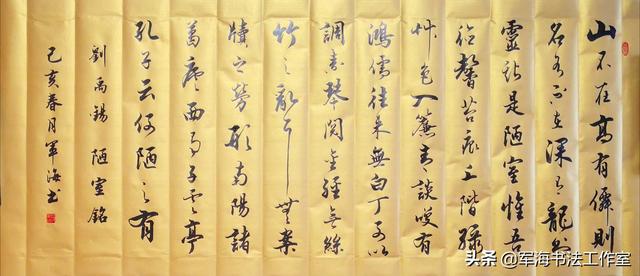 山不在高有僊則
名水不在深有龍則
靈斯是陋室惟吾
德馨苔痕上階綠
艸色入簾青談咲有
鴻儒往來無白丁可以
調素琴閱金經無絲
竹之亂耳無案
牘之勞形南陽諸
葛廬西蜀子雲亭
孔子云何陋之有
劉禹錫 陋室銘
己亥春月軍海書
头条 @军海书法工作室